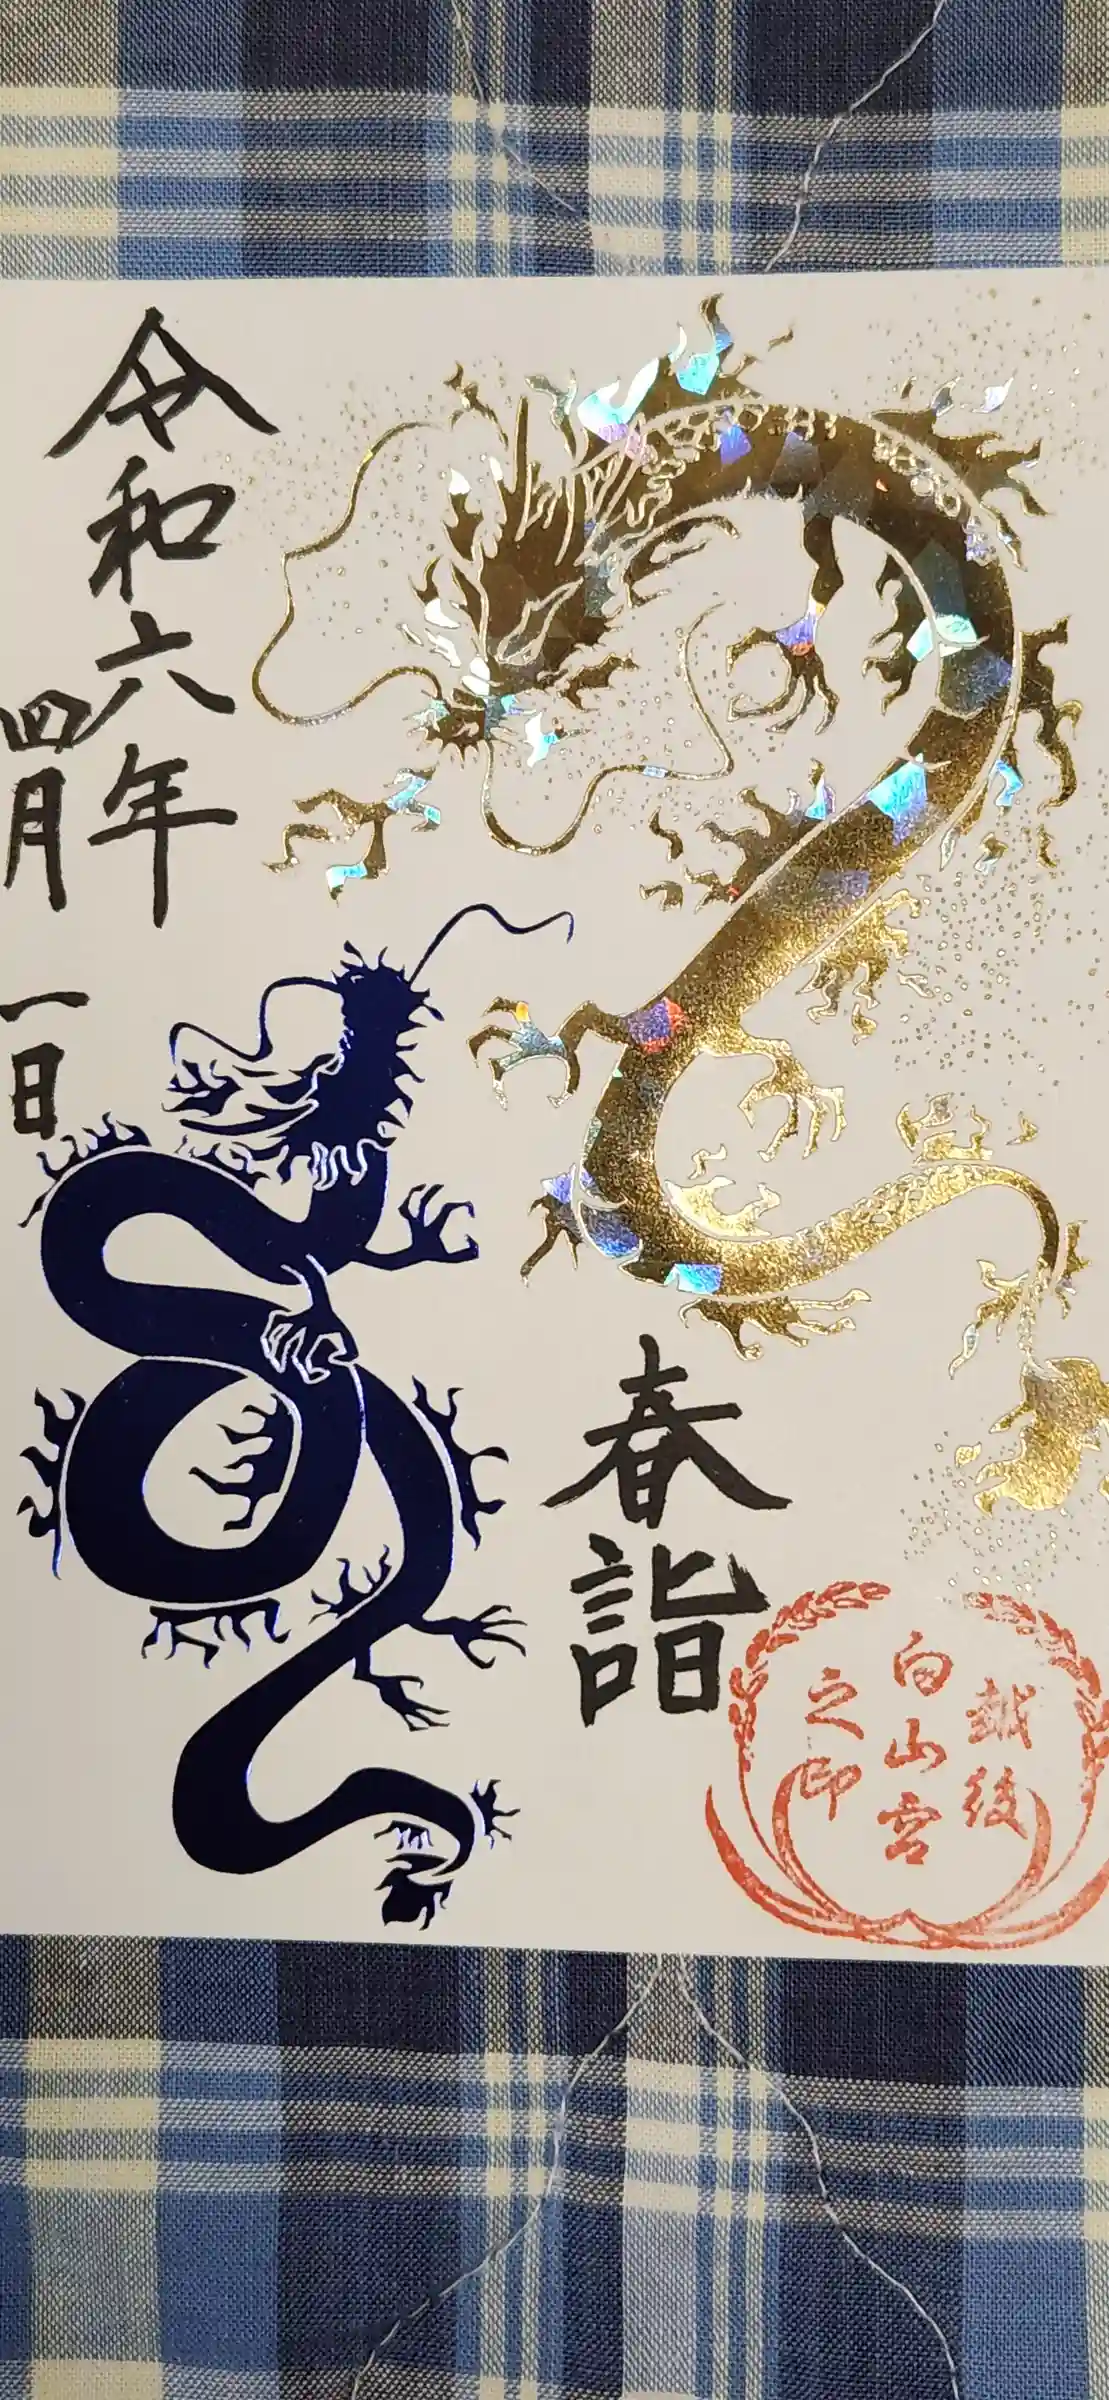 春詣
越後
白山宮
之印
令和六年
四月一日